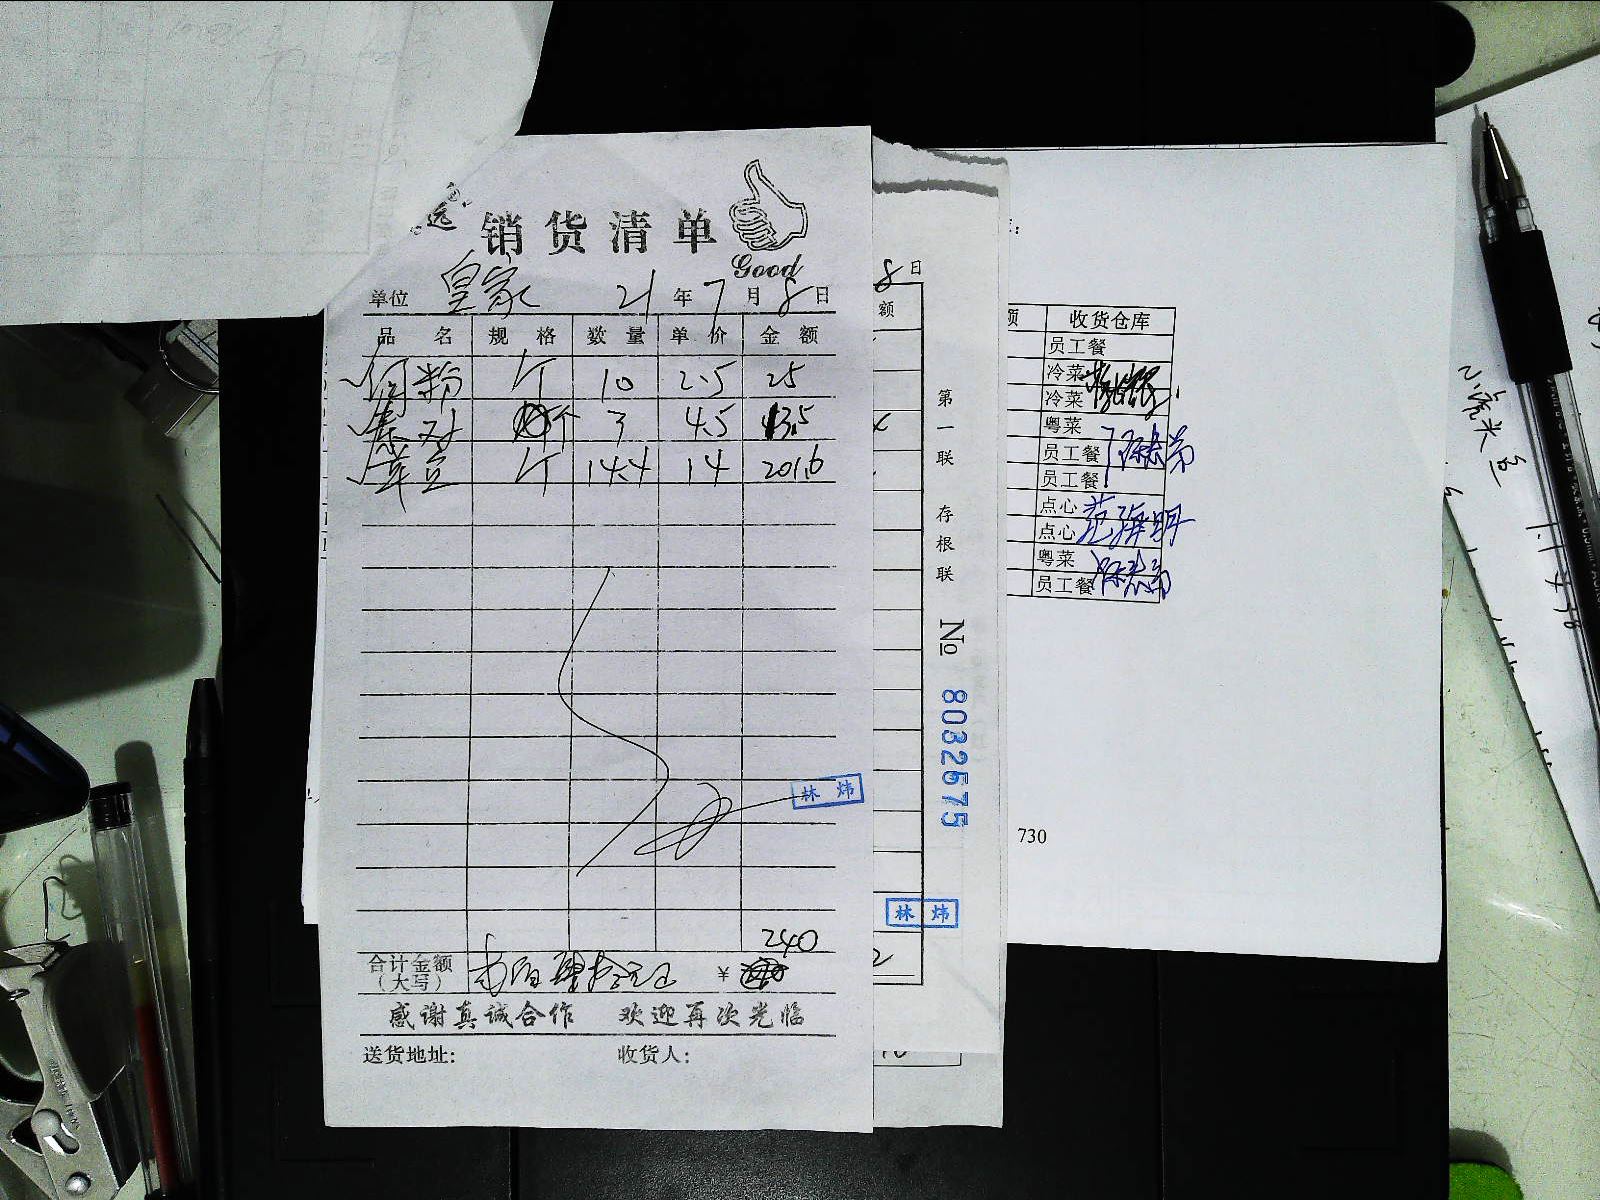 销货清单
Good
单位 皇家 21年7月8日
品名 规格 数量 单价 金额
河粉 个 10 2.5 25
个 3 4.5 13.5
个 14.4 14 201.6
林炜
240
合计金额（大写） 贰佰肆拾元正 ¥
感谢真诚合作 欢迎再次光临
送货地址： 收货人：
8日
额
第一联 存根联
№ 8032675
林炜
2
额 收货仓库
员工餐
冷菜
冷菜
粤菜
员工餐
员工餐
点心
点心
粤菜
员工餐
730